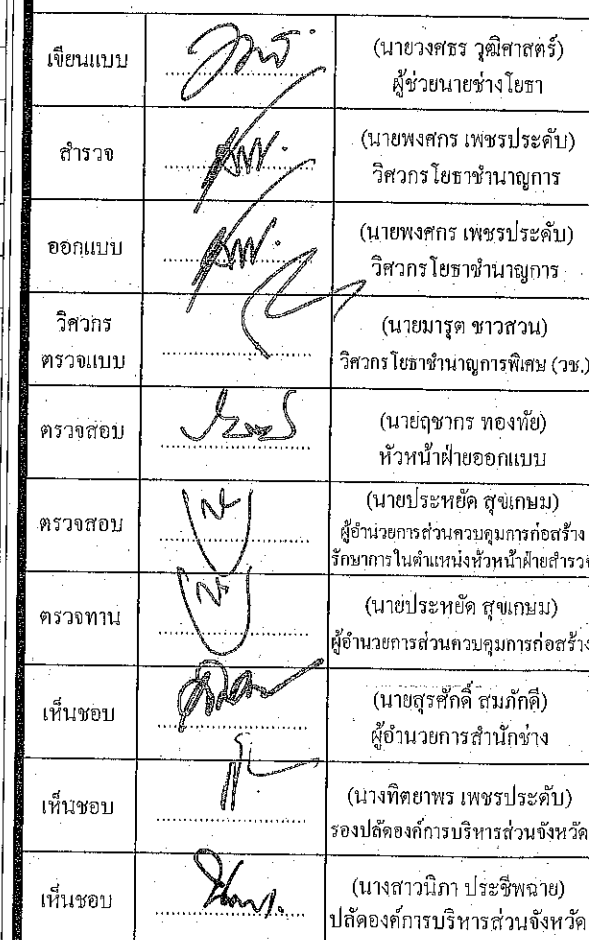 เขียนแบบ
(นายวงศธร วุฒิศาสตร์)
ผู้ช่วยนายช่างโยธา
สำรวจ
(นายพงศกร เพชรประดับ)
วิศวกรโยธาชำนาญการ
ออกแบบ
(นายพงศกร เพชรประดับ)
วิศวกรโยธาชำนาญการ
วิศวกร
ตรวจแบบ
(นายมารุต ชาวสวน)
วิศวกรโยธาชำนาญการพิเศษ (วช.)
ตรวจสอบ
(นายฤชากร ทองทัย)
หัวหน้าฝ่ายออกแบบ
ตรวจสอบ
(นายประหยัด สุขเกษม)
ผู้อำนวยการส่วนควบคุมการก่อสร้าง
รักษาการในตำแหน่งหัวหน้าฝ่ายสำรวจ
ตรวจทาน
(นายประหยัด สุขเกษม)
ผู้อำนวยการส่วนควบคุมการก่อสร้าง
เห็นชอบ
(นายสุรศักดิ์ สมภักดี)
ผู้อำนวยการสำนักช่าง
เห็นชอบ
(นางทิตยาพร เพชรประดับ)
รองปลัดองค์การบริหารส่วนจังหวัด
เห็นชอบ
(นางสาวนิภา ประชีพฉาย)
ปลัดองค์การบริหารส่วนจังหวัด